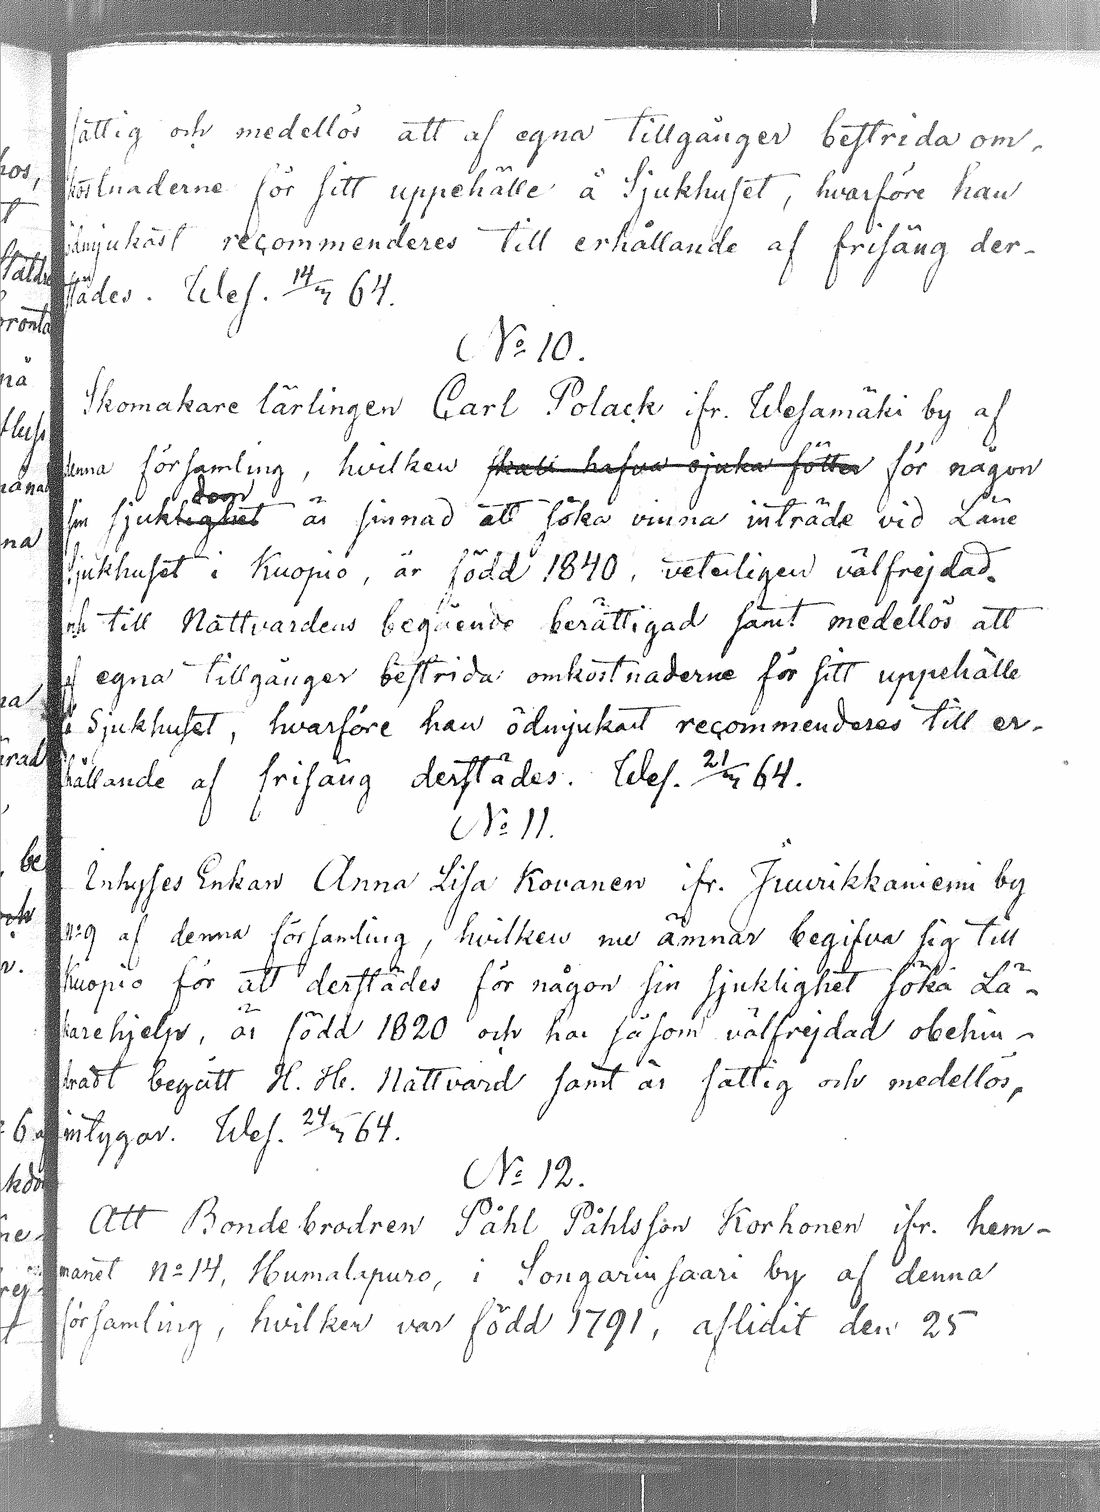 fattig och medellös att af egna tillgångar bestrida om-
kostnaderne för sitt uppehälle å Sjukhuset, hvarföre han
ödmjukast recommenderes till erhållande af frisäng der-
städes. Wes. 14/3 64.
No 10.
Skomakare lärlingen Carl Polack ifr. Wesamäki by af
denna församling, hvilken skall hafva sjuka fötter för någon
dom
sin sjuklighet är sinnad att söka vinna inträde vid Läne
Sjukhuset i Kuopio, är född 1840, veterligen välfrejdad
och till Nattvardens begående berättigad samt medellös att
af egna tillgångar bestrida omkostnaderne för sitt uppehälle
å Sjukhuset, hvarföre han ödmjukast recommenderes till er-
hållande af frisäng derstädes. Wes. 21/3 64.
No 11.
Inhyses Enkan Anna Lisa Kovanen ifr. Juurikkaniemi by
No 9 af denna församling, hvilken nu ämnar begifva sig till
Kuopio för att derstädes för någon sin sjuklighet söka Lä-
karehjelp, är född 1820 och har såsom välfrejdad obehin-
dradt begått H. He. Nattvard samt är fattig och medellös,
intygar. Wes. 24/3 64.
No 12.
Att Bondebrodren Påhl Påhlsson Korhonen ifr. hem-
manet No 14, Humalapuro, i Songarinsaari by af denna
församling, hvilken var född 1791, aflidit den 25